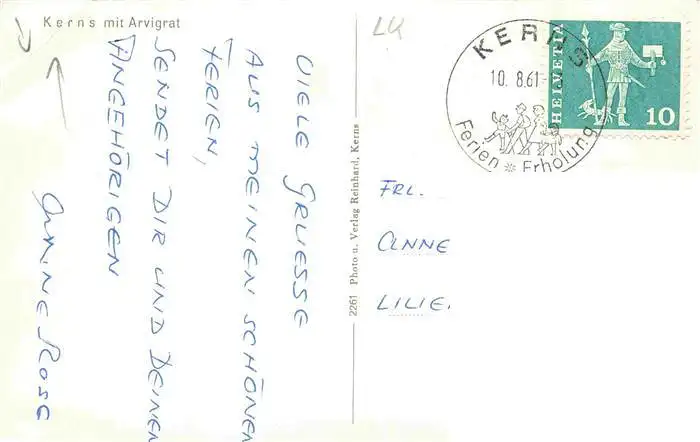 Kerns mit Arvigrat
VIELE GRUESSE
AUS MEINEN SCHÖNEN
FERIEN,
SENDET DIR UND DEINEN
ANGEHÖRIGEN
2261 Photo u. Verlag Reinhard, Kerns
LU
KERNS
10. 8.61-
Ferien * Erholung
HELVETIA
10
FRL.
ANNE
LILIE.